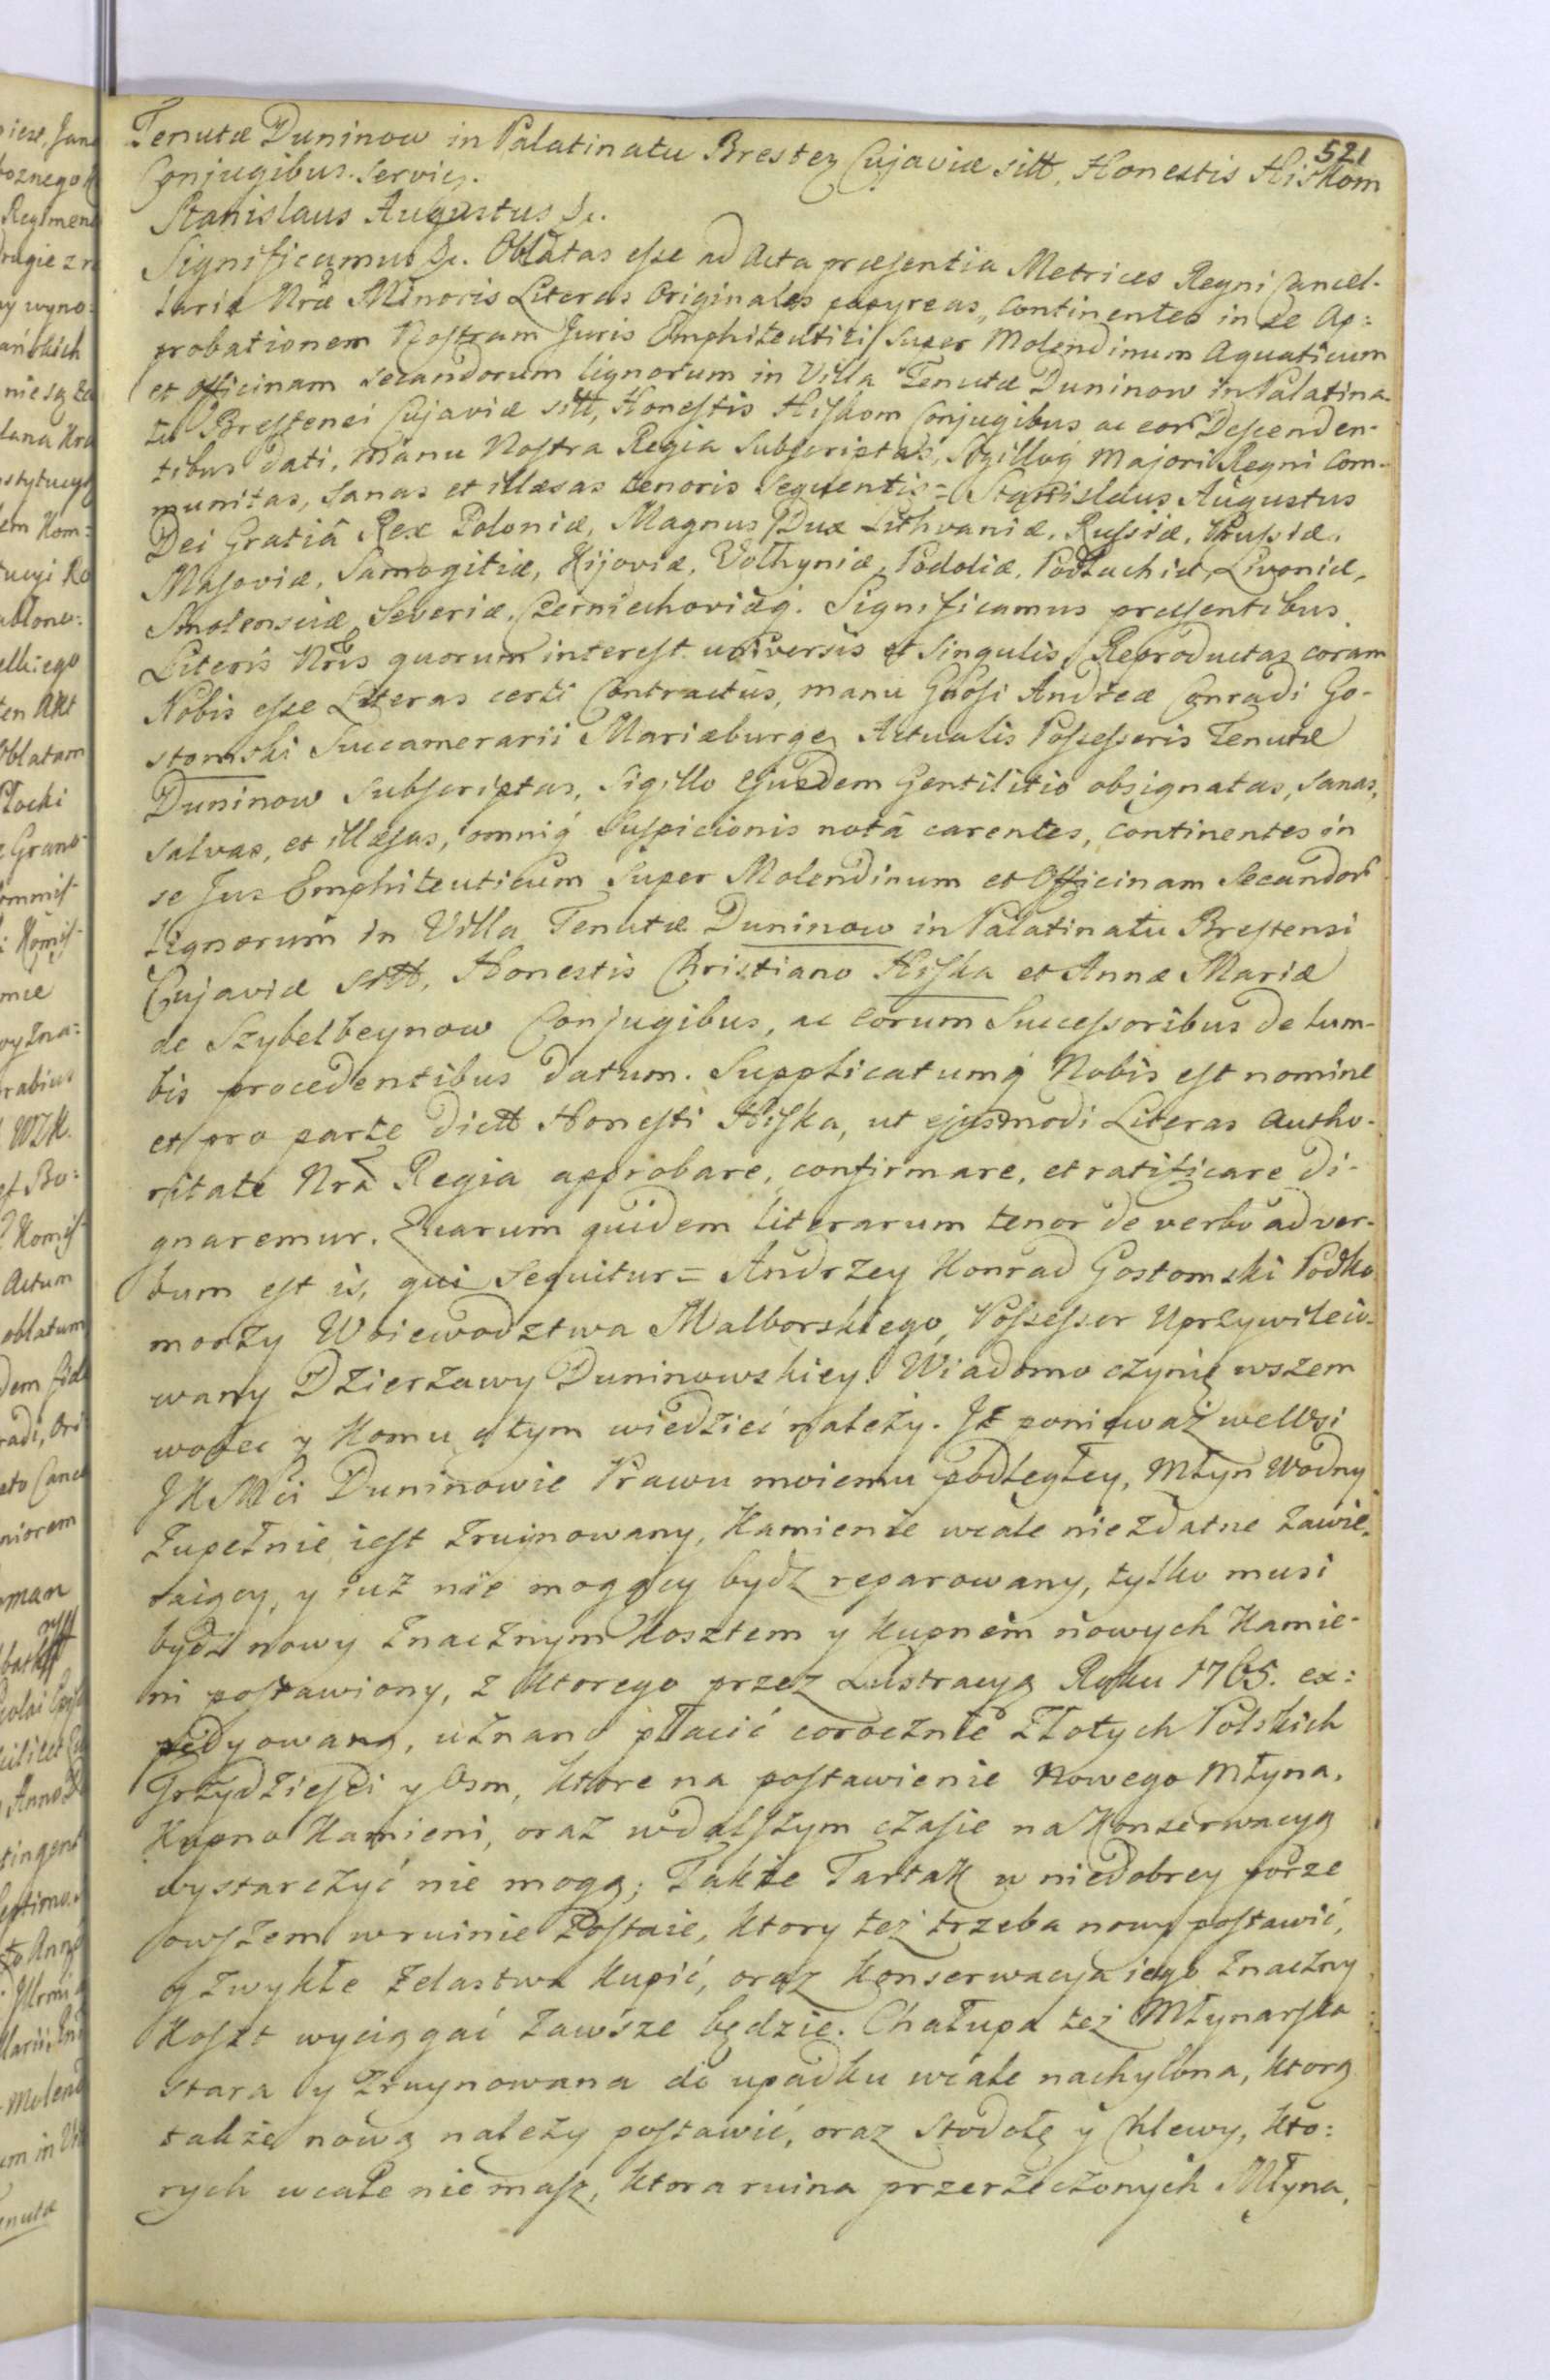 521
Tenutæ Duninow in Palatinatu Brestez Cujaviæ sitt, Honestis Hiskom
Conjugibus. Serviez.
Stanislaus Augustus &c.
Significamus &c. Oblatas esse ad Acta præsentia Metrices Regni Cancel-
lariæ Nræ Minoris Literas Originales papyreas, Continentes in se Ap:
probationem Nostram Juris Emphiteutici super Molendinum Aquaticum
et Officinam secandorum lignorum in Villa Tenutæ Duninow in Palatina
tu Brestensi Cujaviæ sitt, Honestis Hiskom Conjugibus ac eor Descenden-
tibus dati, Manu Nostra Regia Subscriptas, Sigilloq Majori Regni Com-
munitas, Sanas et illæsas tenoris Sequentis = Stanislaus Augustus
Dei Gratiâ Rex Poloniæ, Magnus Dux Lithvaniæ, Russiæ, Prussiæ,
Masoviæ, Samogitiæ, Kijoviæ, Volhyniæ, Podoliæ, Podlachiæ, Livoniæ,
Smolensciæ, Severiæ, Czerniechoviæq. Significamus præsentibus
Literis Nris quorum interest universis et Singulis, Reproductas coram
Nobis esse Literas certi Contractûs, manu Gnosi Andreæ Conradi Go-
stomski Succamerarii Mariæburgen Actualis Possessoris Tenutæ
Duninow Subscriptas, Sigillo Ejusdem Gentilitio obsignatas, Sanas,
Salvas, et illæsas, omniq Suspicionis notâ carentes, Continentes in
se Jus Emphiteuticum Super Molendinum et Officinam Secandor
Lignorum in Villa Tenutæ Duninow in Palatinatu Brestensi
Cujaviæ sitt, Honestis Christiano Hiska et Annæ Mariæ
de Szybelbeynow Conjugibus, ac Eorum Successoribus de lum-
bis procedentibus datum. Supplicatumq Nobis est nomine
et pro parte dictt Honesti Hiska, ut ejusmodi Literas Autho-
ritate Nra Regia approbare, confirmare, et ratificare di-
gnaremur. Quarum quidem literarum tenor de verbo ad ver-
bum est is, qui Sequitur = Andrzey Konrad Gostomski Podko
morzy Woiewodztwa Malborskiego, Possessor Uprzywileio-
wany Dzierzawy Duninowskiey. Wiadomo czynię wszem
wobec y Komu o tym wiedzieć należy. Iż ponieważ we Wsi
JK Mci Duninowie Prawu moiemu podległey, Młyn Wodny
Zupełnie iest zruinowany, Kamienie wcale niezdatne zawie-
raiący, y iuż nie mogący bydź reparowany, tylko musi
bydź nowy znacznym Kosztem y kupnem nowych Kamie-
ni postawiony, z Ktorego przez Lustracyą Roku 1765. ex:
pedyowaną, uznano płacić corocznie Złotych Polskich
Trzydzieści y Osm, Ktore na postawienie Nowego Młyna,
Kupno Kamieni, oraz w dalszym czasie na Konserwacyą
wystarczyć nie mogą; Także Tartak w niedobrey porze
owszem w ruinie Zostaie, Ktory też trzeba nowy postawić,
y zwykłe Zelastwa Kupić, oraz Konserwacya iego Znaczny
Koszt wyciągać zawsze będzie. Chałupa też Młynarska
stara y Zruynowana do upadku wcale nachylona, Ktorą
także nową należy postawić, oraz Stodołę y Chlewy, Kto:
rych wcale niemasz, Ktora ruina przerzeczonych Młyna,